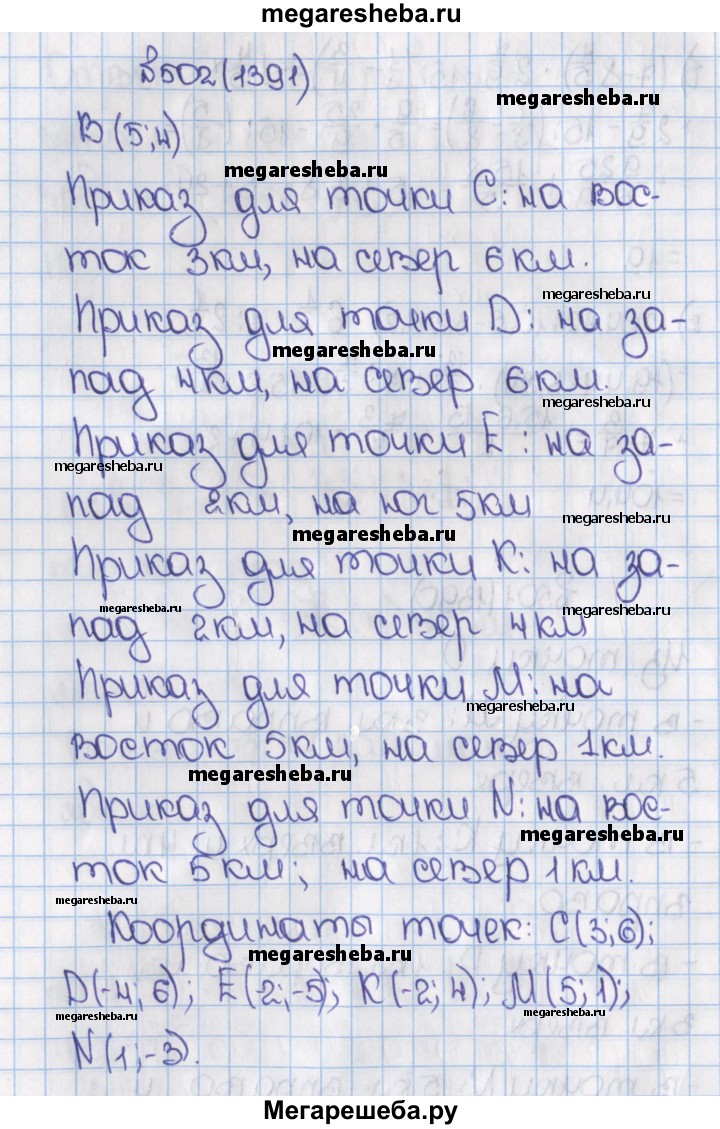 megaresheba.ru
№502(1391)
megaresheba.ru
B(5;4)
megaresheba.ru
Приказ для точки C: на вос-
ток 3км, на север 6км.
megaresheba.ru
Приказ для точки D: на за-
megaresheba.ru
пад 4км, на север 6км.
megaresheba.ru
Приказ для точки E: на за-
megaresheba.ru
пад 2км, на юг 5км
megaresheba.ru
megaresheba.ru
Приказ для точки K: на за-
megaresheba.ru
megaresheba.ru
пад 2км, на север 4км
Приказ для точки M: на
megaresheba.ru
восток 5км, на север 1км.
megaresheba.ru
Приказ для точки N: на вос-
megaresheba.ru
ток 5км; на север 1км.
megaresheba.ru
Координаты точек: C(3;6);
megaresheba.ru
D(-4;6); E(-2;-5); K(-2;4); M(5;1);
megaresheba.ru
megaresheba.ru
N(1;-3).
Мегарешеба.ру